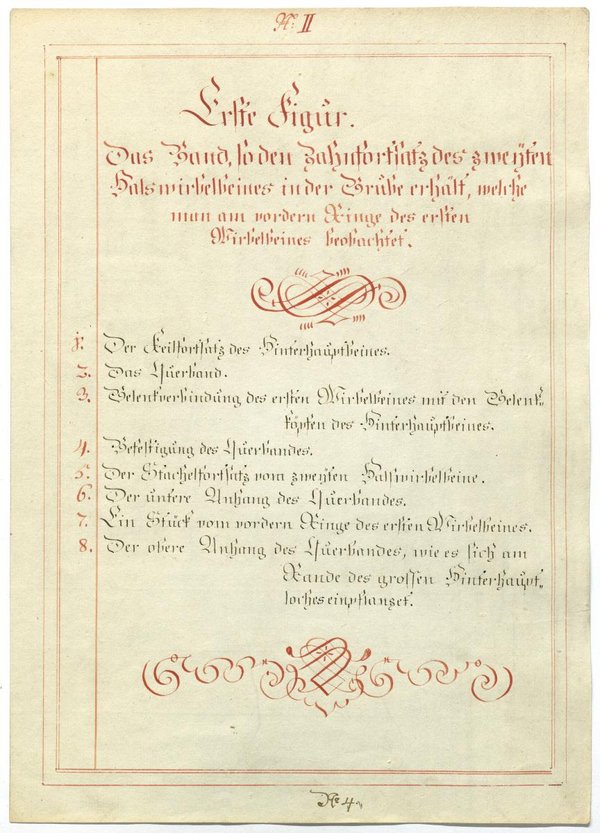 No. II
Erste Figur.
Das Band, so den Zahnfortsatz des zweyten
Halswirbelbeines in der Grube erhält, welche
man am vordern Ringe des ersten
Wirbelbeines beobachtet.
1. Der Keilfortsatz des Hinterhauptbeines.
2. Das Querband.
3. Gelenkverbindung des ersten Wirbelbeines mit den Gelenk„
köpfen des Hinterhauptbeines.
4. Befestigung des Querbandes.
5. Der Stachelfortsatz vom zweyten Halswirbelbeine.
6. Der untere Anhang des Querbandes.
7. Ein Stück vom vordern Ringe des ersten Wirbelbeines.
8. Der obere Anhang des Querbandes, wie es sich am
Rande des grossen Hinterhaupt„
loches einpflanzet.
No 4.